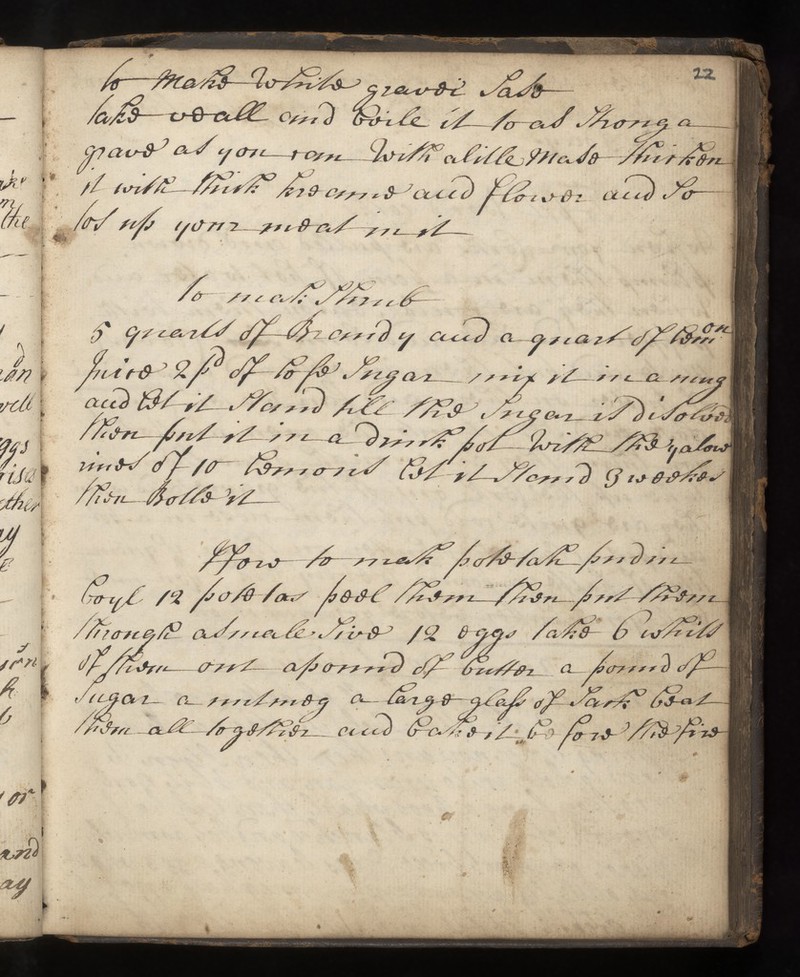 22
to Make White gravei Sase
take veall and boile it to as Strong a
grave as you can With alitle Mase thicken
it with thick kreame and flower and So
tos up your meat in it
to mak Shrub
5 quarts of Brandy and a quart of lemon
Juice 2 pd of lofe Sugar mix it in a mug
and let it Stand till the Sugar is disolved
then put it in a drink pot With the yalow
rines of 10 lemons let it Stand 3 weekes
then Botle it
How to mak potetah pudin
boyl 12 potetas peel them then put them
through asmale Sive 12 eggs take 6 whits
of them out apound of butter a pound of
Sugar a nutmeg a large glass of Sack beat
them all together and bake it before the fire
the
an
well
ggs
ther
ay
or
and
ay